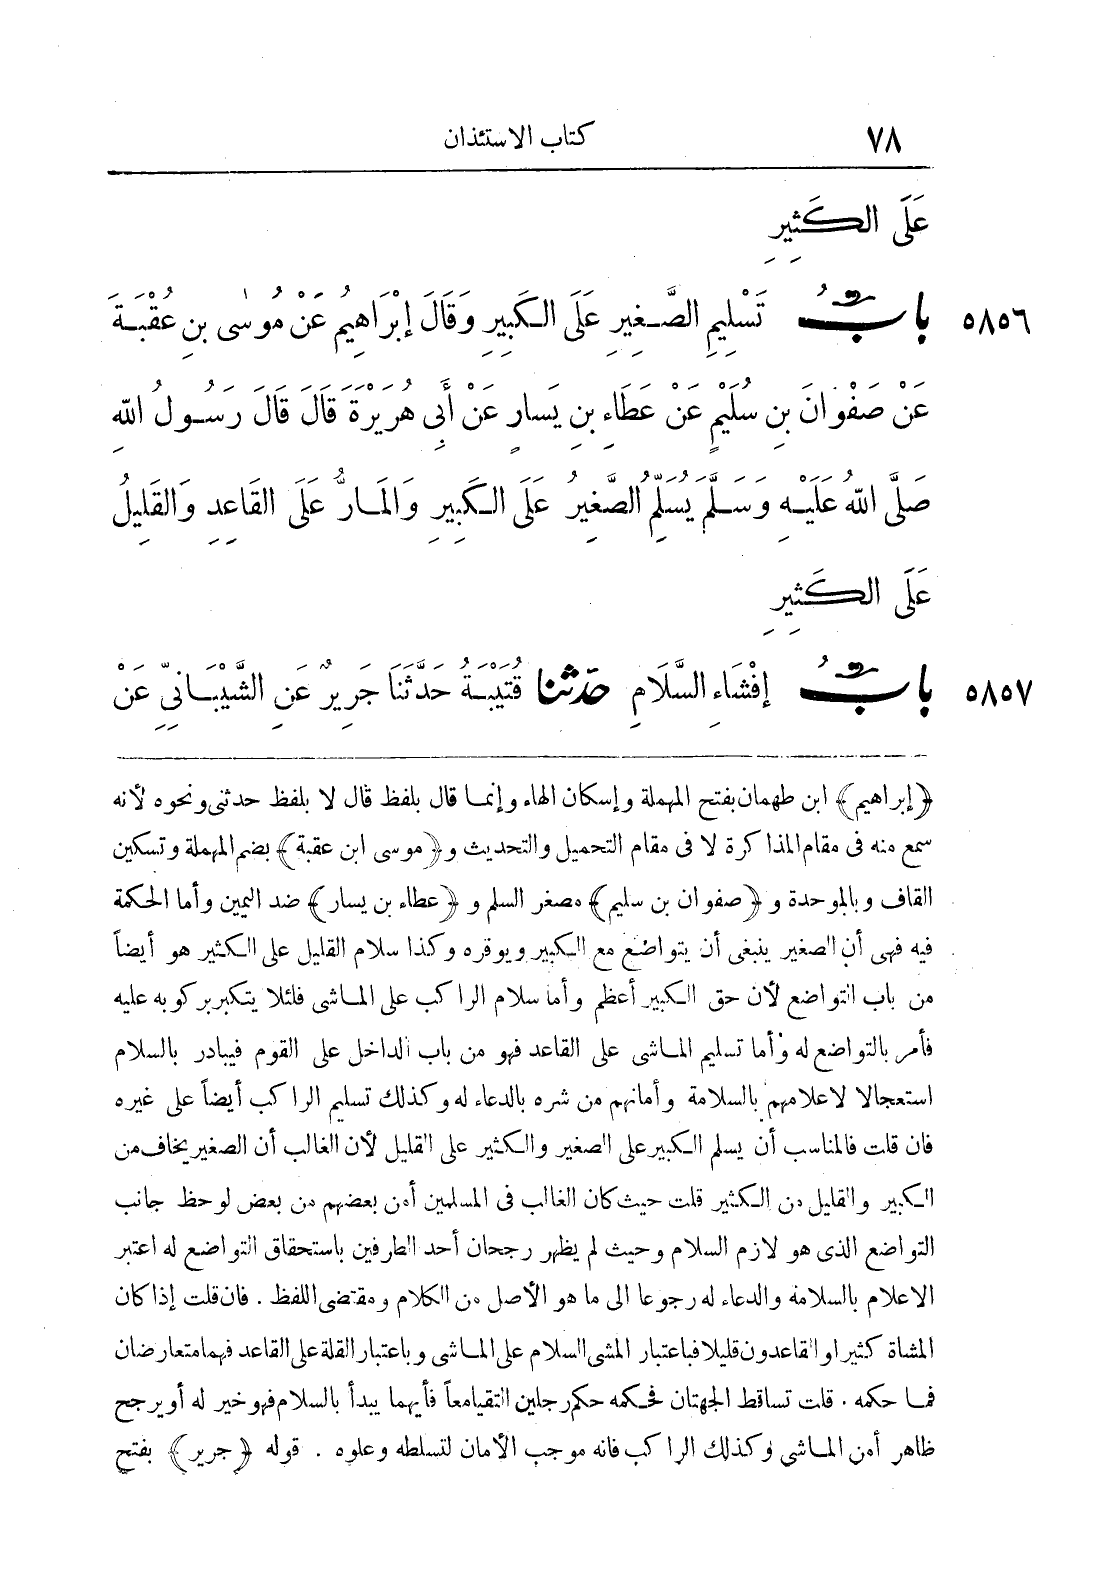 ٧٨ كتاب الاستئذان
عَلَى الكَثِيرِ
٥٨٥٦ بابُ تَسْلِيمِ الصَّغِيرِ عَلَى الكَبِيرِ وَقَالَ إِبْرَاهِيمُ عَنْ مُوسٰى بنِ عُقْبَةَ
عَنْ صَفْوَانَ بنِ سُلَيْمٍ عَنْ عَطَاءِ بنِ يَسَارٍ عَنْ أَبِى هُرَيْرَةَ قَالَ قَالَ رَسُولُ اللّهِ
صَلَّى اللّهُ عَلَيْهِ وَسَلَّمَ يُسَلِّمُ الصَّغِيرُ عَلَى الكَبِيرِ وَالمَارُّ عَلَى القَاعِدِ وَالقَلِيلُ
عَلَى الكَثِيرِ
٥٨٥٧ بابُ إِفْشَاءِ السَّلَامِ حَدّثنا قُتَيْبَةُ حَدَّثَنَا جَرِيرٌ عَنِ الشَّيْبَانِىِّ عَنْ
﴿إبراهيم﴾ ابن طهمان بفتح المهملة وإسكان الهاء وإنما قال بلفظ قال لا بلفظ حدثنى ونحوه لأنه
سمع منه فى مقام المذاكرة لا فى مقام التحميل والتحديث و﴿موسى ابن عقبة﴾ بضم المهملة وتسكين
القاف وبالموحدة و﴿صفوان بن سليم﴾ مصغر السلم و﴿عطاء بن يسار﴾ ضد اليمين وأما الحكمة
فيه فهى أن الصغير ينبغى أن يتواضع مع الكبير ويوقره وكذا سلام القليل على الكثير هو أيضاً
من باب التواضع لأن حق الكبير أعظم وأما سلام الراكب على الماشى فلئلا يتكبر بركوبه عليه
فأمر بالتواضع له وأما تسليم الماشى على القاعد فهو من باب الداخل على القوم فيبادر بالسلام
استعجالا لاعلامهم بالسلامة وأمانهم من شره بالدعاء له وكذلك تسليم الراكب أيضاً على غيره
فان قلت فالمناسب أن يسلم الكبير على الصغير والكثير على القليل لأن الغالب أن الصغير يخاف من
الكبير والقليل من الكثير قلت حيث كان الغالب فى المسلمين أمن بعضهم من بعض لوحظ جانب
التواضع الذى هو لازم السلام وحيث لم يظهر رجحان أحد الطرفين باستحقاق التواضع له اعتبر
الاعلام بالسلامة والدعاء له رجوعا الى ما هو الأصل من الكلام ومقتضى اللفظ . فان قلت إذا كان
المشاة كثيرا والقاعدون قليلا فباعتبار المشى السلام على الماشى وباعتبار القلة على القاعد فهما متعارضان
فما حكمه . قلت تساقط الجهتان فحكمه حكم رجلين التقيا معاً فأيهما يبدأ بالسلام فهو خير له أو يرجح
ظاهر أمن الماشى وكذلك الراكب فانه موجب الأمان لتسلطه وعلوه . قوله ﴿جرير﴾ بفتح